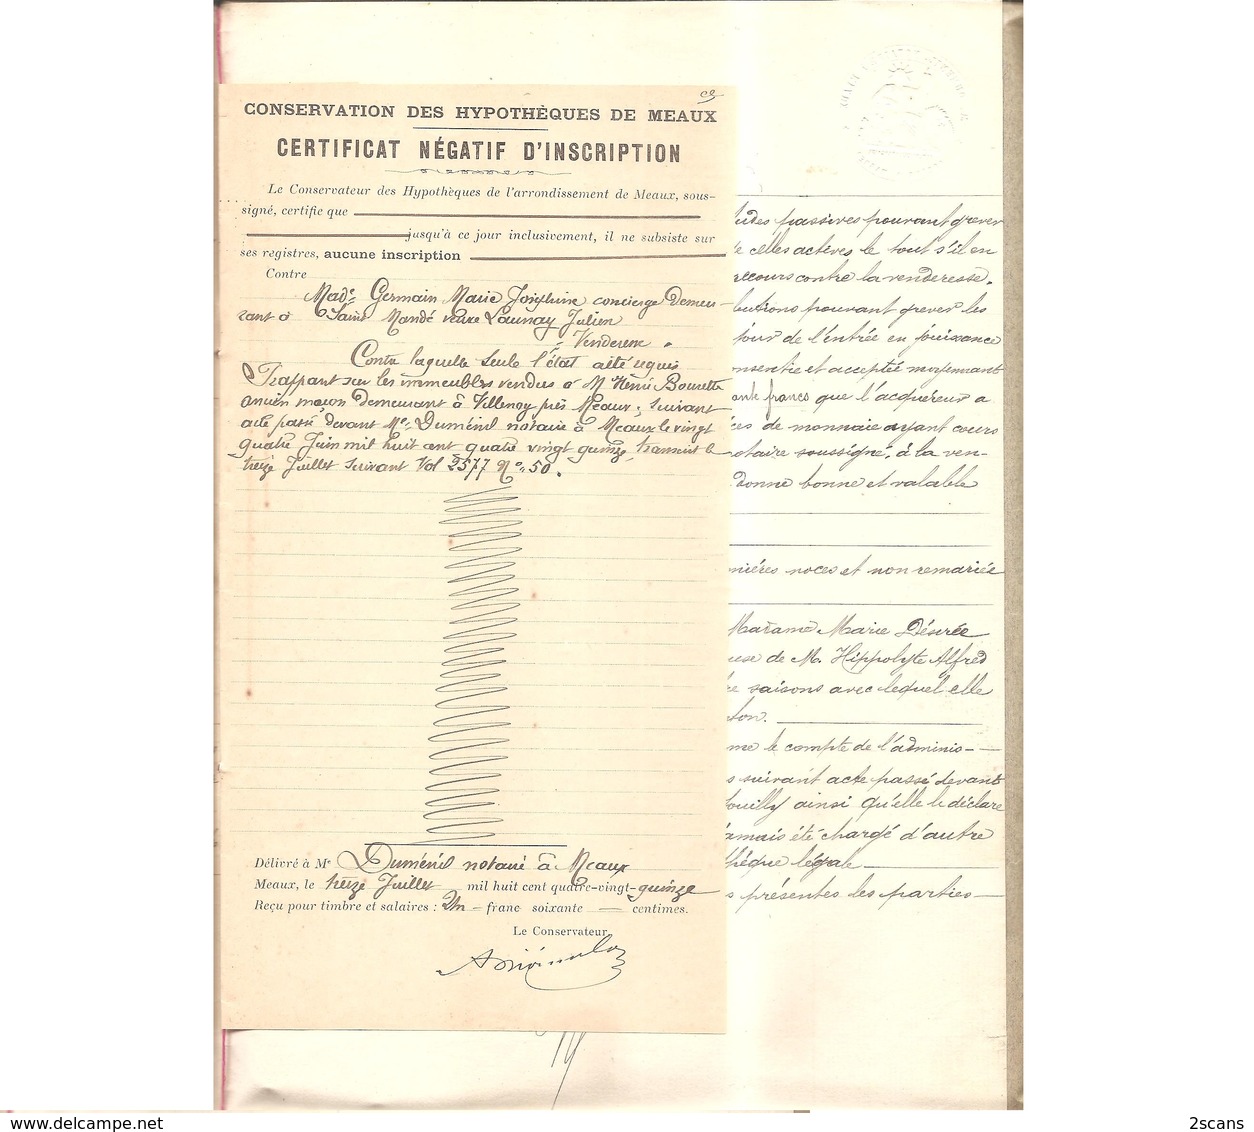 CONSERVATION DES HYPOTHÈQUES DE MEAUX
CERTIFICAT NÉGATIF D'INSCRIPTION
Le Conservateur des Hypothèques de l'arrondissement de Meaux, sous-
signé, certifie que
jusqu'à ce jour inclusivement, il ne subsiste sur
ses registres, aucune inscription
Contre
Made Germain Marie Joséphine concierge demeu-
rant à Saint Mandé veuve Launay Julien
Venderesse.
Contre laquelle seule l'état a été requis
Frappant sur les immeubles vendus à M. Henri Bourette
ancien maçon demeurant à Villenoy près Meaux, suivant
acte passé devant Me Duménil notaire à Meaux le vingt
quatre Juin mil huit cent quatre vingt quinze, transcrit le
treize Juillet suivant Vol 2577 No 50.
Délivré à Me Duménil notaire à Meaux
Meaux, le treize Juillet mil huit cent quatre-vingt-quinze
Reçu pour timbre et salaires : Un franc soixante centimes.
Le Conservateur,
tudes passives pouvant grever
de celles actives le tout s'il en
recours contre la venderesse.
butions pouvant grever les
jour de l'entrée en jouissance
onsentie et acceptée moyennant
ante francs que l'acquéreur a
ces de monnaie ayant cours
otaire soussigné, à la ven-
donne bonne et valable
mières noces et non remariée
Madame Marie Désirée
use de M. Hippolyte Alfred
re saisons avec lequel elle
ton.
me le compte de l'adminis-
s suivant acte passé devant
ouilly ainsi qu'elle le déclare
amais été chargé d'autre
thèque légale
s présentes les parties
www.delcampe.net
2scans